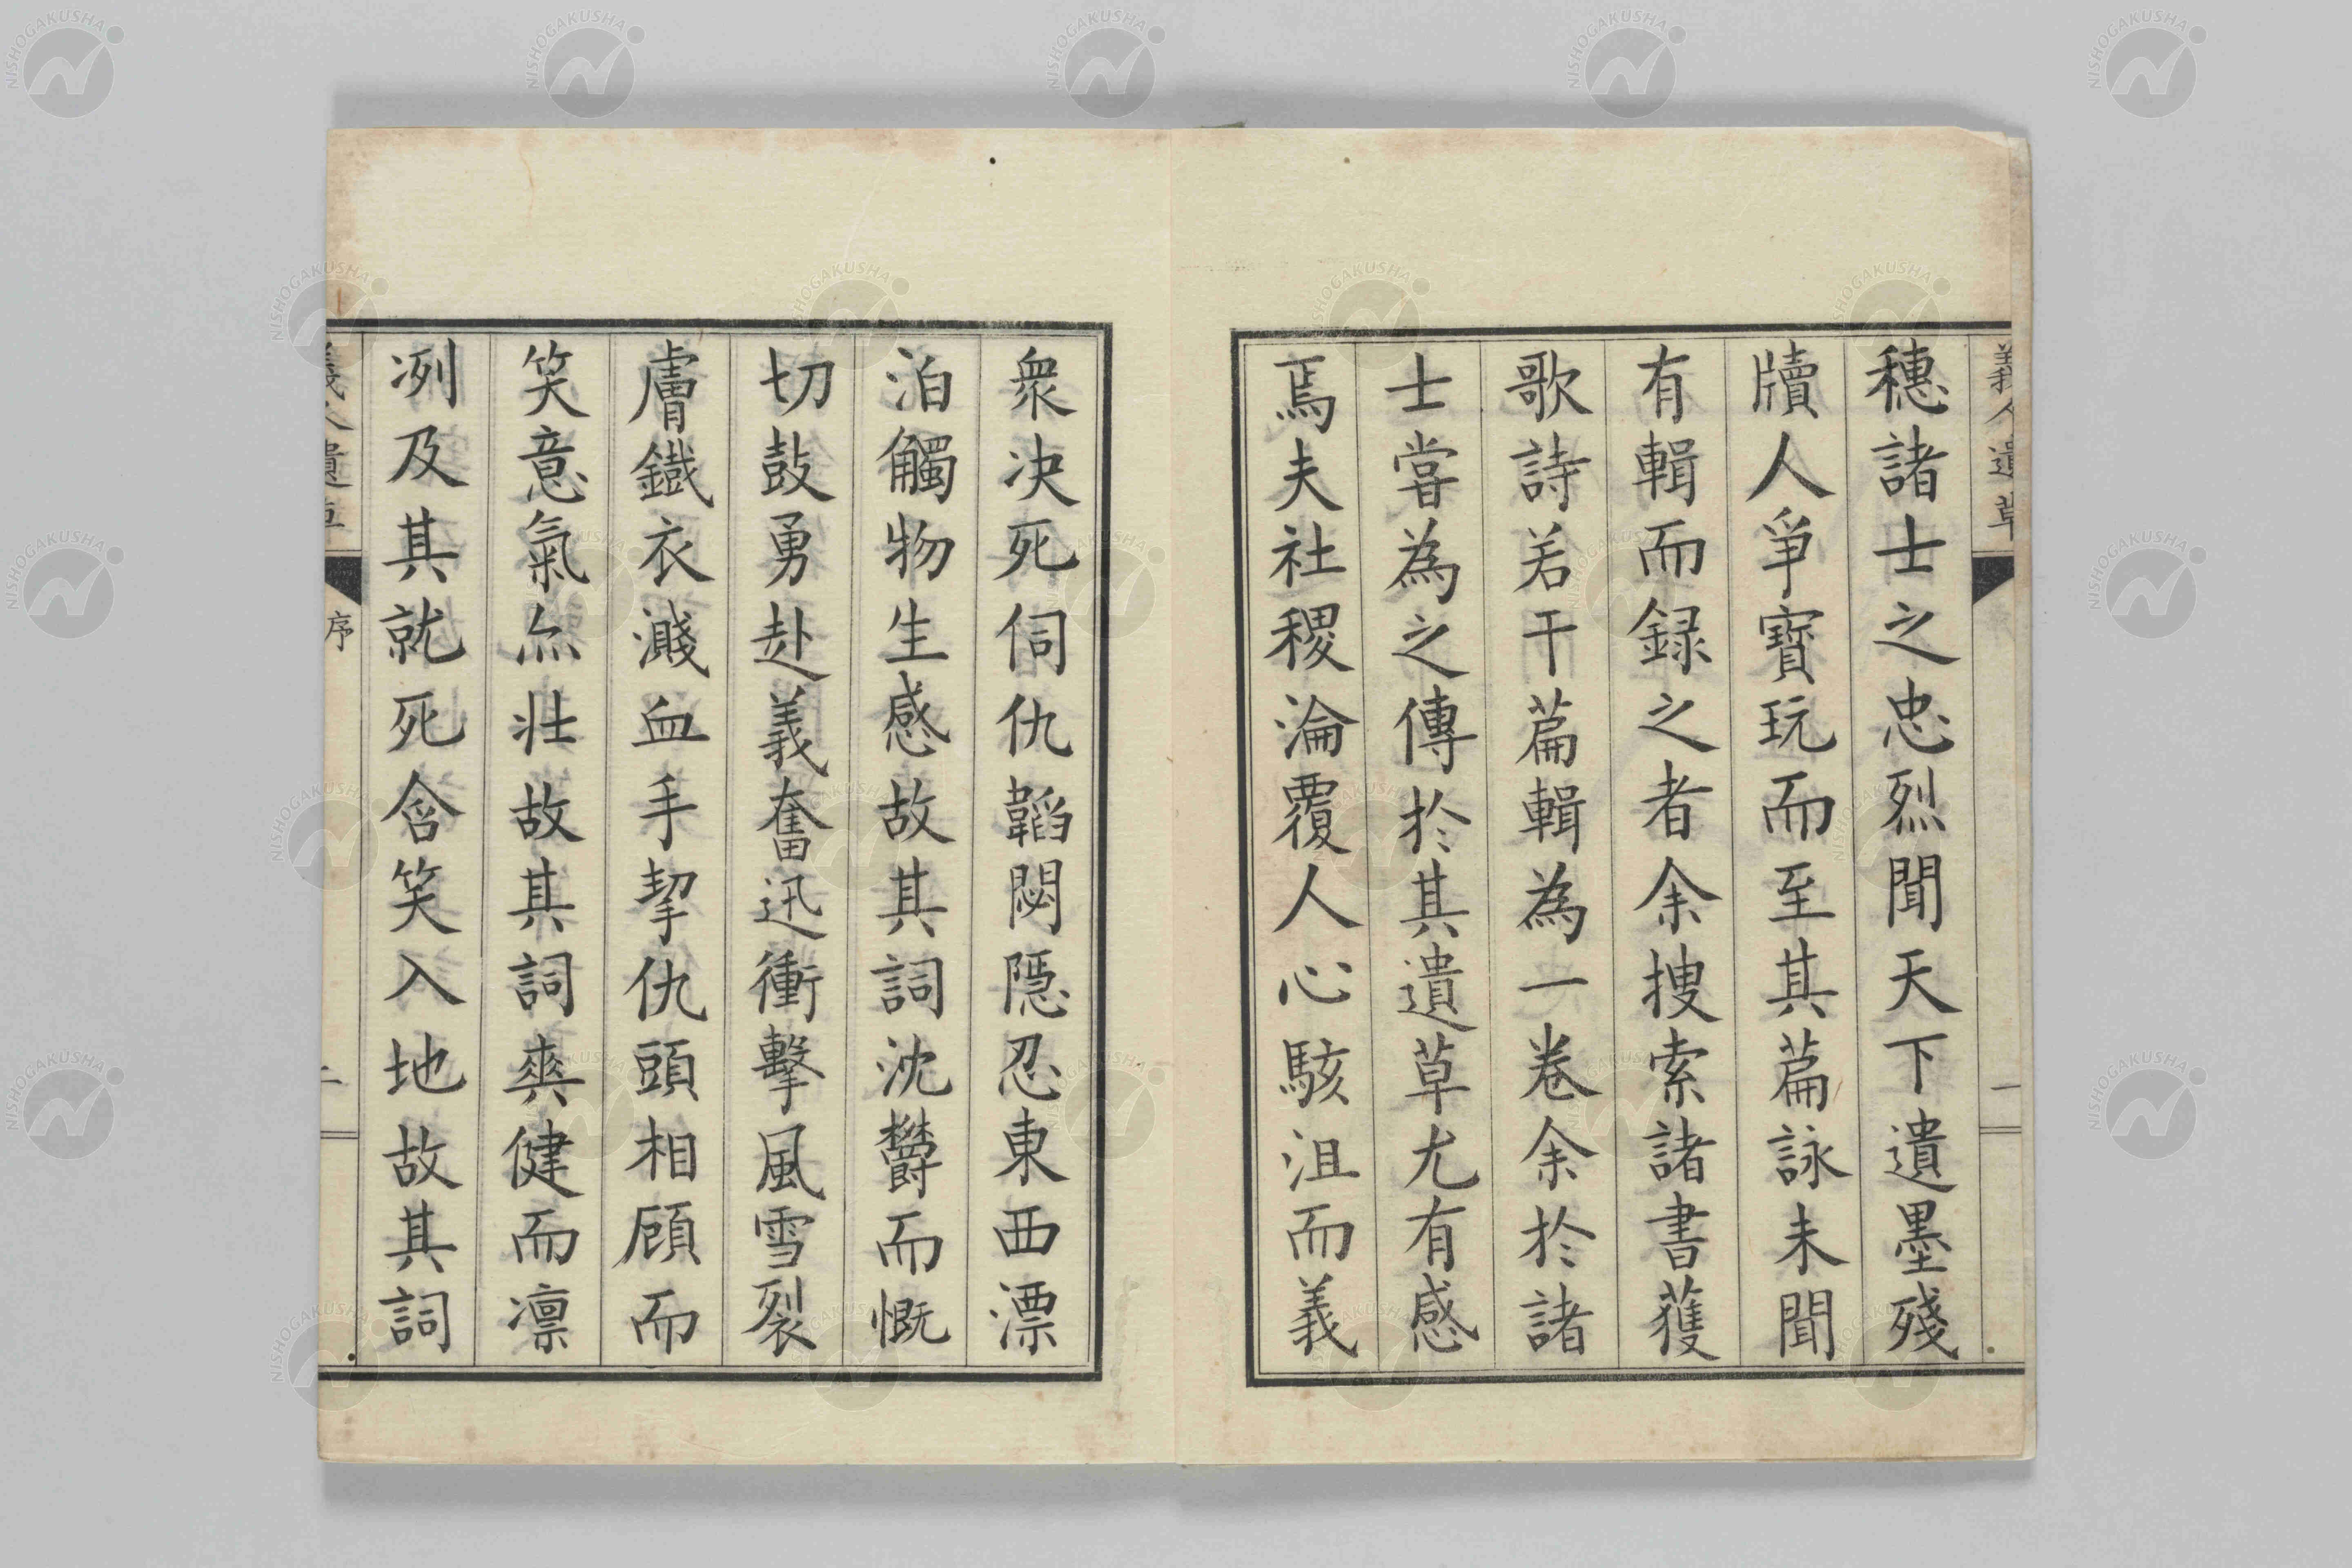 義人遺草
一
穗諸士之忠烈聞天下遺墨殘
牘人爭寶玩而至其萹詠未聞
有輯而録之者余搜索諸書獲
歌詩若干萹輯為一卷余於諸
士嘗為之傳於其遺草尤有感
焉夫社稷淪覆人心駭沮而義
衆決死伺仇韜閟隱忍東西漂
泊觸物生感故其詞沈鬱而慨
切鼓勇赴義奮迅衝擊風雪裂
膚鐵衣濺血手挈仇頭相顧而
笑意氣尒壯故其詞爽健而凛
冽及其就死含笑入地故其詞
義人遺草
序
二
NISHOGAKUSHA